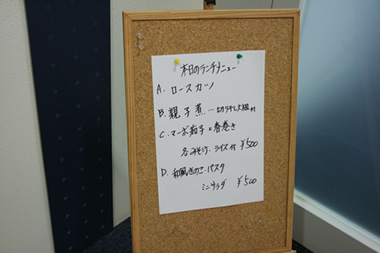 本日のランチメニュー
A. ロースカツ
B. 親子煮
C. マーボ茄子と春巻き
各みそ汁、ライス付 ¥500
D. 和風きのこパスタ
ミニサラダ ¥500